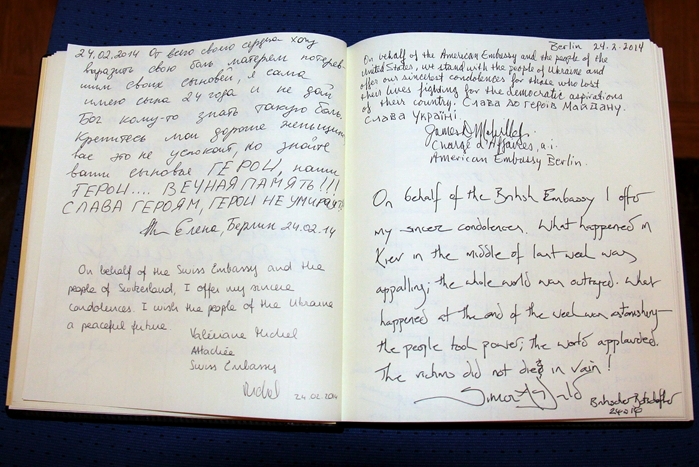 24.02.2014 От всего своего сердца хочу
выразить свою боль матерям потеряв-
шим своих сыновей, я сама
имею сына 24 года и не дай
Бог кому-то знать такую боль.
Крепитесь мои дорогие женщины
вас это не успокоит, но знайте
ваши сыновья ГЕРОИ, наши
ГЕРОИ.... ВЕЧНАЯ ПАМЯТЬ!!!
СЛАВА ГЕРОЯМ, ГЕРОИ НЕ УМИРАЮТ!
Елена, Берлин 24.02.14
On behalf of the Swiss Embassy and the
people of Switzerland, I offer my sincere
condolences. I wish the people of the Ukraine
a peaceful future
Valériane Michel
Attachée
Swiss Embassy
Michel
24.02.2014
Berlin 24.2.2014
On behalf of the American Embassy and the people of the
United States, we stand with the people of Ukraine and
offer our sincerest condolences for those who lost
their lives fighting for the democratic aspirations
of their country. Слава до героїв Майдану.
Слава Україні
James D. Melville
Chargé d'Affaires, a.i.
American Embassy Berlin.
On behalf of the British Embassy I offer
my sincere condolences. What happened in
Kiev in the middle of last week was
appalling; the whole world was outraged. What
happened at the end of the week was astonishing—
the people took power; the world applauded.
The victims did not died in vain!
Simon
Britischer Botschafter